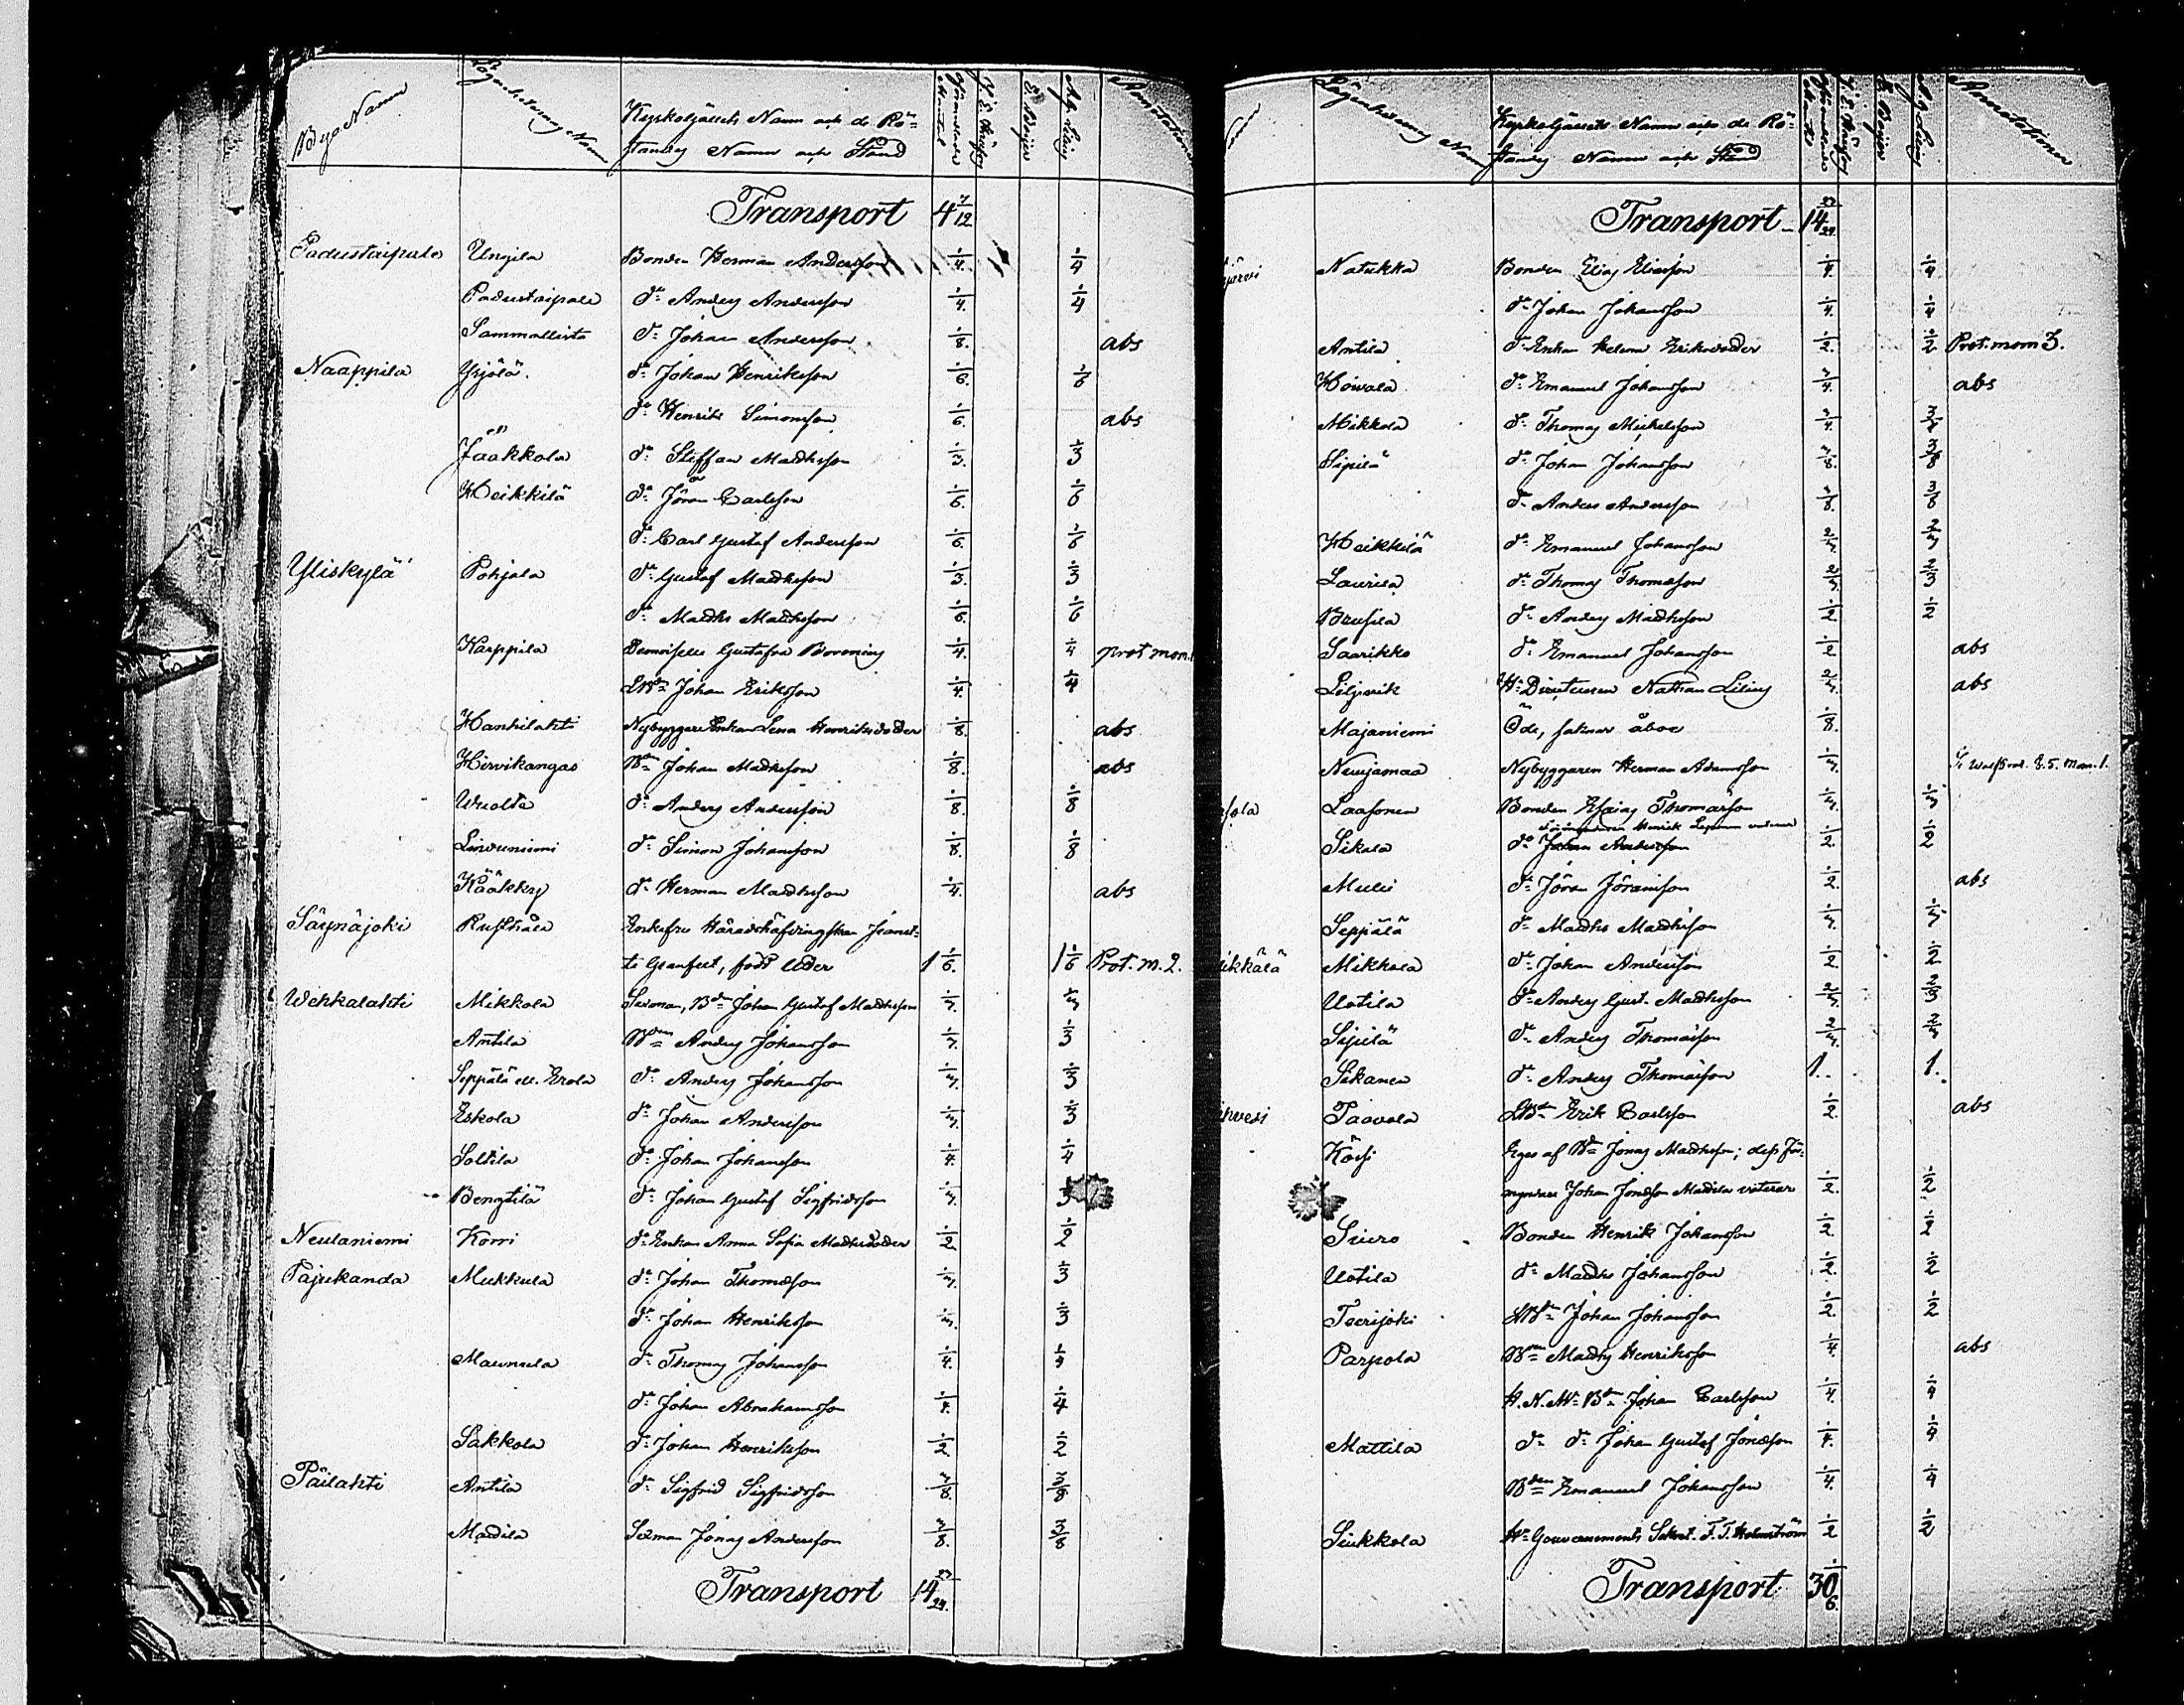 By Namn Lägenheternas Namn Kyrkoljussets Namn och de Rö= Hemmantalet Annotationer
standes Namn och Stånd
Transport 4 7/12
Padustaipale Ungila Bonden Herman Andersson 1/4. 1/4
Padustaipale d:o Anders Andersson 1/4. 1/4
Sammallisto d:o Johan Andersson 1/8. abs
Naappila Yrjölä. d:o Johan Henriksson 1/6. 1/6
d:o Henrik Simonsson 1/6. abs
Jaakkola d:o Steffan Matthsson 1/3. 1/3
Heikkilä d:o Jöran Carlsson 1/6. 1/6
d:o Carl Gustaf Andersson 1/6. 1/6
Yliskylä Pohjola d:o Gustaf Matthsson 1/3. 1/3
d:o Matths Matthsson 1/6. 1/6
Karppila Demoiselle Gustafva Boronius 1/4. 1/4 prot mom.
Johan Eriksson 1/4. 1/4
Hankilahti Nybyggare Enkan Lena Henriksdotter 1/8. abs
Hirvikangas B:n Johan Matthsson 1/8. abs
Wuolta d:o Anders Andersson 1/8. 1/8
Linduniemi d:o Simon Johansson 1/8. 1/8
Kääkky d:o Herman Matthsson 1/4. abs
Säynäjoki Rusthåll Enkefru Häradshöfdingskan Jeanet=
te Granfelt, född Uder 1 1/6. 1 1/6 Prot. m. 2.
Wehkalahti Mikkola Sexman, B:n Johan Gustaf Matthsson 1/3. 1/3
Antila B:n Anders Johansson 1/3. 1/3
Seppälä ell. Erola d:o Anders Johansson 1/3. 1/3
Eskola d:o Johan Andersson 1/3. 1/3
Soltila d:o Johan Johansson 1/4. 1/4
Bengtilä d:o Johan Gustaf Sigfridsson 1/3.
Neulaniemi Korri d:o Enkan Anna Sofia Matthsdotter 1/2 1/2
Pajukanda Mukkula d:o Johan Thomasson 1/3. 1/3
d:o Johan Henriksson 1/3. 1/3
Maunula d:o Thomas Johansson 1/4. 1/4
d:o Johan Abrahamsson 1/4. 1/4
Sakkola d:o Johan Henriksson 1/2. 1/2
Päilahti Antila d:o Sigfrid Sigfridsson 3/8. 3/8
Mattila Sexman Jonas Andersson 3/8. 3/8
Transport 14 23/24.
Lägenheternas Namn Kyrkoljussets Namn och de Rö= Hemmantalet Annotationer
standes Namn och Stånd
Transport 14 23/24.
järvi Natukka Bonden Elias Eliasson 1/4. 1/4
d:o Johan Johansson 1/4. 1/4
Antila d:o Enkan Helena Eriksdotter 1/2. 1/2 Prot. mom 3.
Howala d:o Emanuel Johansson 3/4. abs
Mikkola d:o Thomas Michelsson 3/4. 3/4
Sipilä d:o Johan Johansson 3/8. 3/8
d:o Anders Andersson 3/8. 3/8
Heikkilä d:o Emanuel Johansson 2/3. 2/3
Laurila d:o Thomas Thomasson 2/3. 2/3
Brusila d:o Anders Matthsson 1/2. 1/2
Saarikko d:o Emanuel Johansson 1/2 abs
Liljevik H:r Directeuren Nathan Lilius 2/3. abs
Majaniemi Öde, saknar åboe 1/8.
Nuijamaa Nybyggaren Herman Adamsson 1/3.
sola Laasonen Bonden Esaias Thomasson 1/3. 1/3
Sikala d:o Johan Andersson 1/2. 1/2
Muli d:o Jöran Jöransson 1/2. abs
Seppälä d:o Matths Matthsson 1/3. 1/3
ikkälä Mikkola d:o Johan Andersson 1/2. 1/2
Uotila d:o Anders Gust. Matthsson 2/3. 2/3
Sipilä d:o Anders Thomasson 2/3. 2/3
Sikanen d:o Anders Thomasson 1. 1.
hvesi Paavola Erik Carlsson 1/2. abs
Körsi Eges af B:n Jonas Matthsson; dess för=
myndare Johan Jonasson Mattila voterar 1/2. 1/2
Siuro Bonden Henrik Johansson 1/2. 1/2
Uotila d:o Matths Johansson 1/2. 1/2
Teerijoki Johan Johansson 1/2. 1/2
Parpola B:n Matths Henriksson 1/4. abs
H.N.M: B:n Johan Carlsson 1/4. 1/4
Mattila d:o d:o Johan Gustaf Jonasson 1/4. 1/4
B:den Emanuel Johansson 1/4. 1/4
Siukkola H:r Gouvernements Sekret. F.T. Holmström 1/2 1/2
Transport 30 1/6.